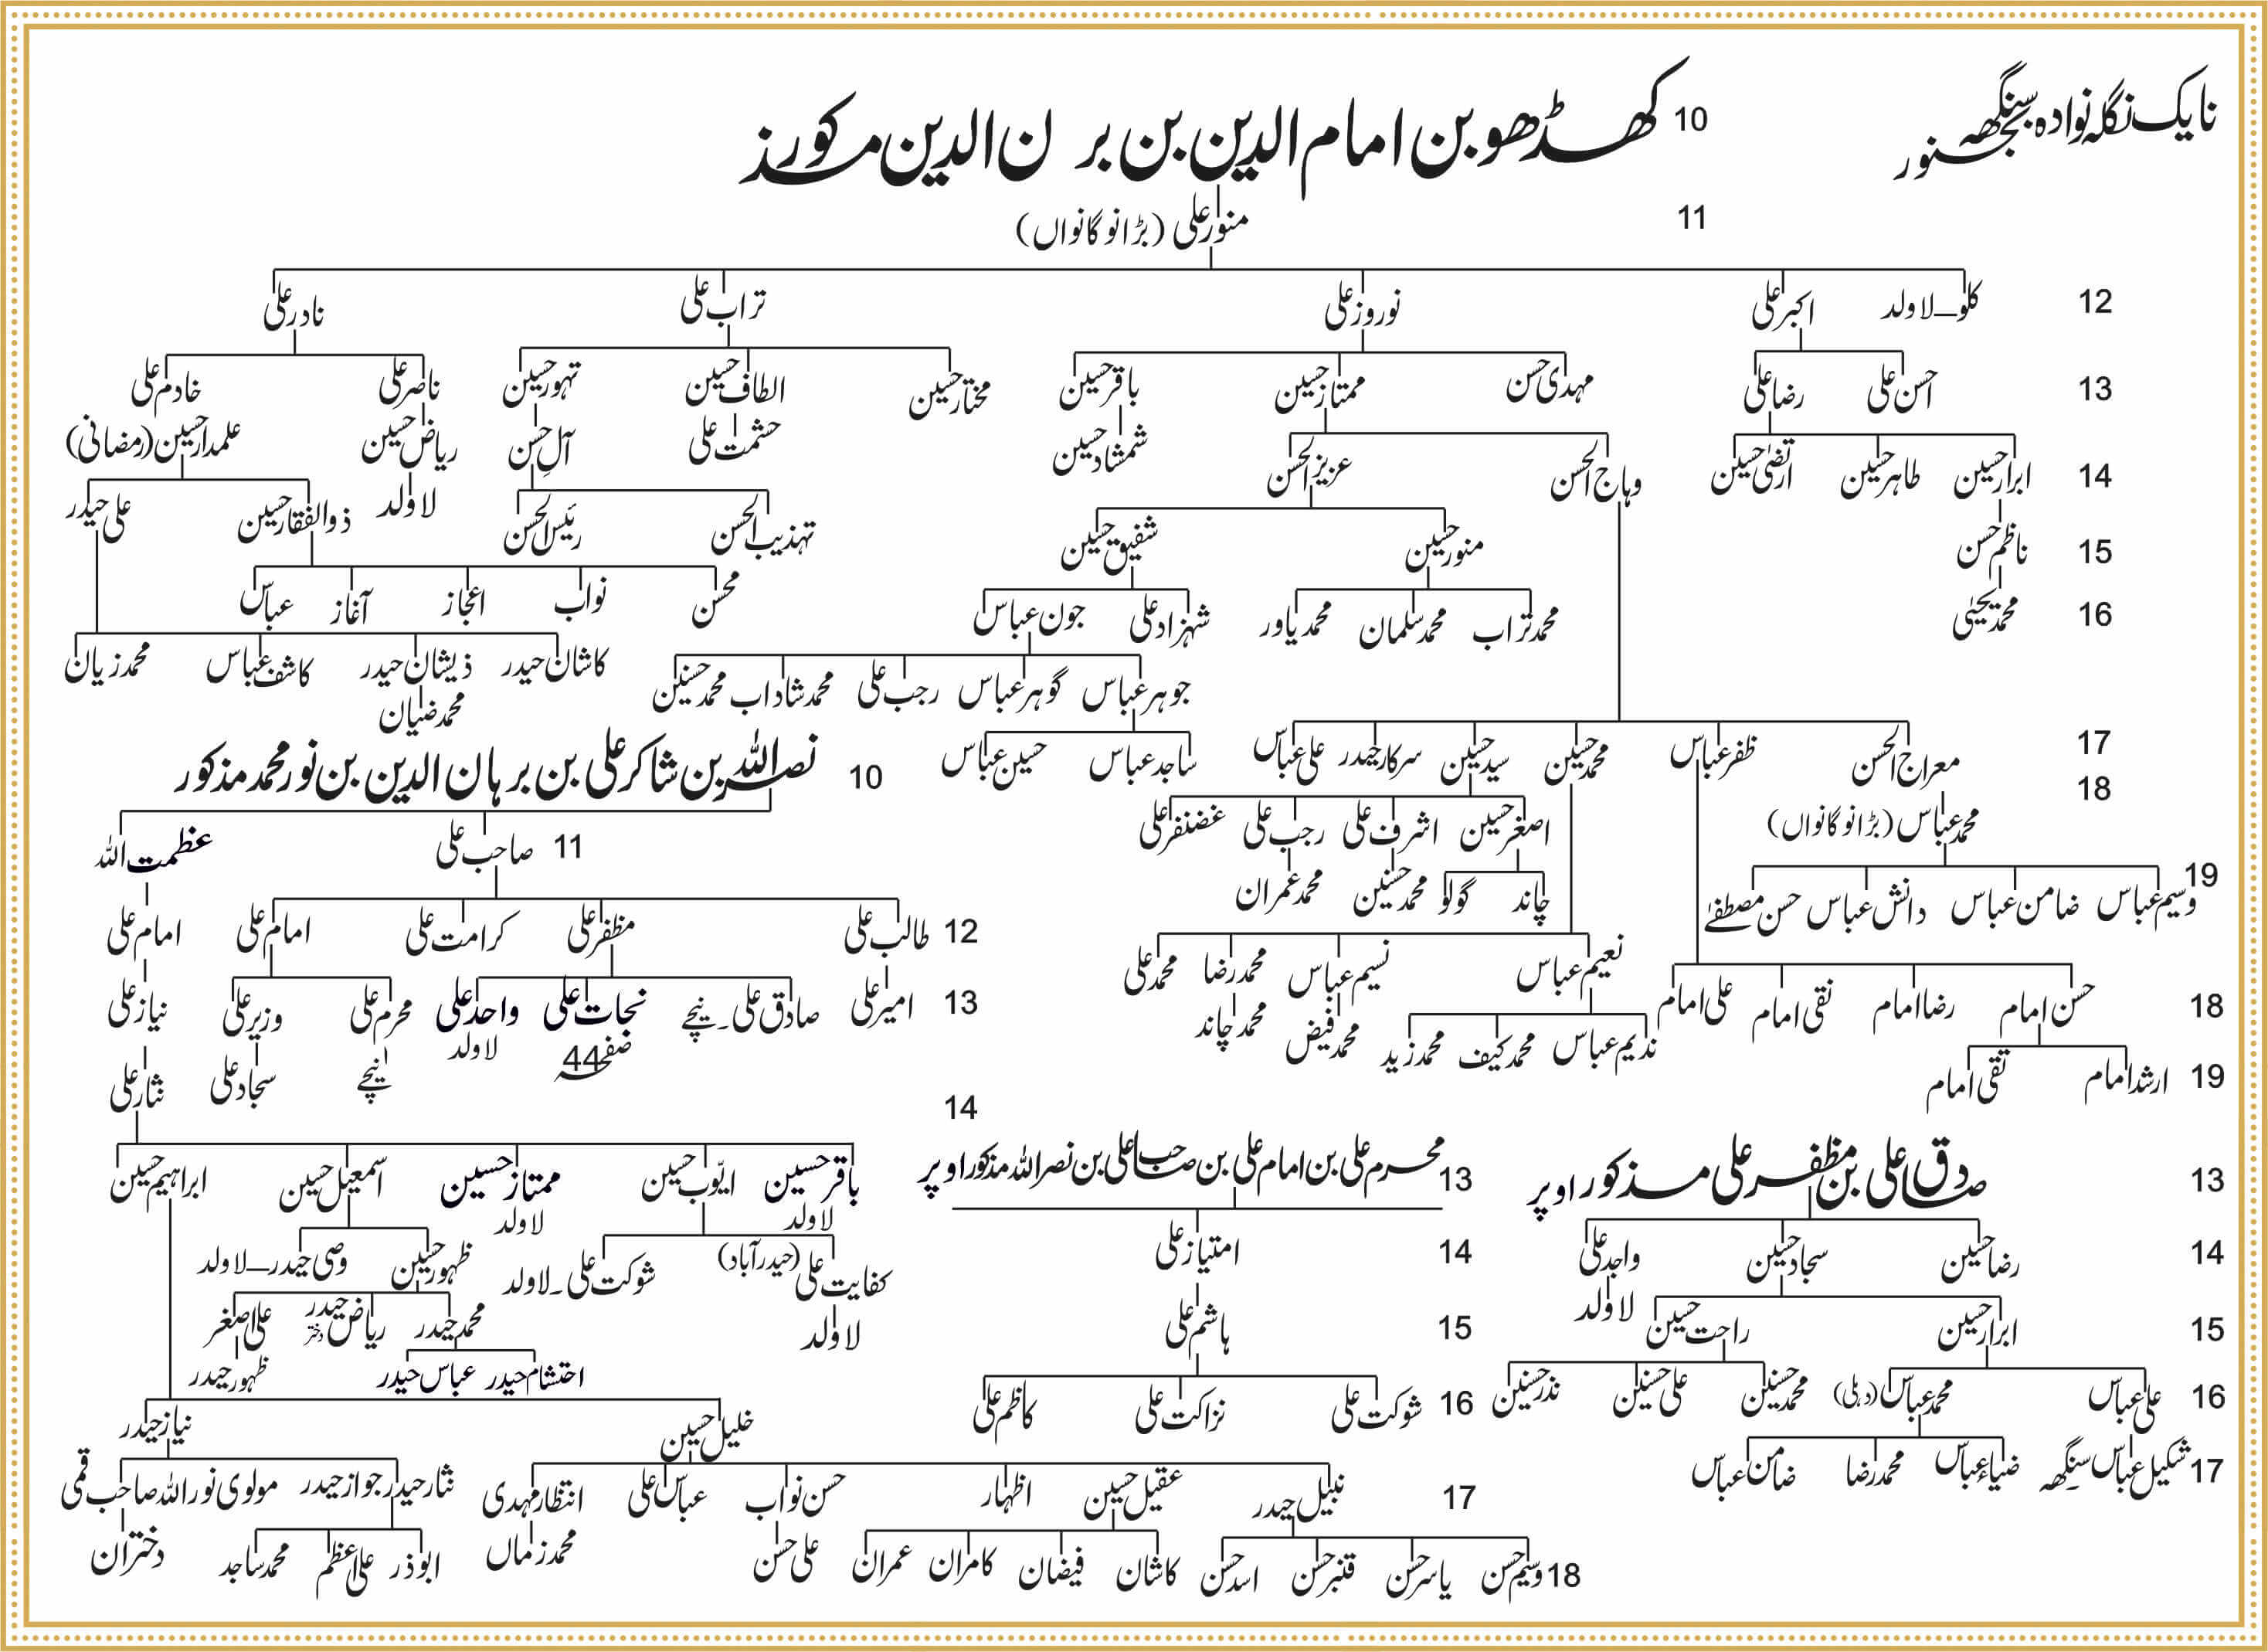 نایک نگلہ نوادہ سنگھہ بجنور
10 کھڈھو بن امام الدین بن بر ن الدین مذکور
11 منور علی (بڑا نو گانواں)
12 کلو_لاولد اکبر علی نوروز علی تراب علی نادر علی
13 احسن علی رضا علی مہدی حسن ممتاز حسین باقر حسین مختار حسین الطاف حسین تہور حسین ناصر علی خادم علی
14 ابرار حسین طاہر حسین ارتضیٰ حسین وہاج الحسن عزیز الحسن شمشاد حسین حشمت علی آلِ حسن ریاض حسین علمدار حسین (رمضانی)
15 ناظم حسن منور حسین شفیق حسین تہذیب الحسن رئیس الحسن لاولد ذوالفقار حسین علی حیدر
16 محمد یحییٰ محمد تراب محمد سلمان محمد یاور شہزاد علی جون عباس محسن نواب اعجاز آغاز عباس
کاشان حیدر ذیشان حیدر کاشف عباس محمد زیان
جوہر عباس گوہر عباس رجب علی محمد شاداب محمد حسنین محمد ضیان
17 معراج الحسن ظفر عباس محمد حسین سید حسین سرکار حیدر علی عباس ساجد عباس حسین عباس
18 محمد عباس (بڑا نو گانواں) اصغر حسین اشرف علی رجب علی غضنفر علی
چاند گولو محمد حسنین محمد عمران
19 وسیم عباس ضامن عباس دانش عباس حسن مصطفےٰ
نعیم عباس نسیم عباس محمد رضا محمد علی
18 حسن امام رضا امام نقی امام علی امام
ندیم عباس محمد کیف محمد زید محمد فیض محمد چاند
19 ارشد امام تقی امام
10 نصر اللہ بن شاکر علی بن برہان الدین بن نور محمد مذکور
11 صاحب علی عظمت اللہ
12 طالب علی مظفر علی کرامت علی امام علی امام علی
13 امیر علی صادق علی۔نیچے نجات علی واحد علی محرم علی وزیر علی نیاز علی
صفحہ 44 لاولد نیچے سجاد علی نثار علی
14
باقر حسین ایوّب حسین ممتاز حسین اسمعیل حسین ابراہیم حسین
لاولد لاولد
کفایت علی (حیدرآباد) شوکت علی۔لاولد ظہور حسین وصی حیدر_لاولد
لاولد محمد حیدر ریاض حیدر دختر علی اصغر
احتشام حیدر عباس حیدر ظہور حیدر
خلیل حسین نیاز حیدر
17 نبیل حیدر عقیل حسین اظہار حسن نواب عباس علی انتظار مہدی نثار حیدر جواز حیدر مولوی نور اللہ صاحب قمی
18 وسیم حسن یاسر حسن قنبر حسن اسد حسن کاشان فیضان کامران عمران علی حسن محمد زماں ابوذر علی اعظم محمد ساجد دختران
13 محرم علی بن امام علی بن صاحب علی بن نصر اللہ مذکور اوپر
14 امتیاز علی
15 ہاشم علی
16 شوکت علی نزاکت علی کاظم علی
13 صادق علی بن مظفر علی مذکور اوپر
14 رضا حسین سجاد حسین واجد علی
15 ابرار حسین راحت حسین لاولد
16 علی عباس محمد عباس (دہلی) محمد حسنین علی حسنین نذر حسنین
17 شکیل عباس سنگھہ ضیاء عباس محمد رضا ضامن عباس